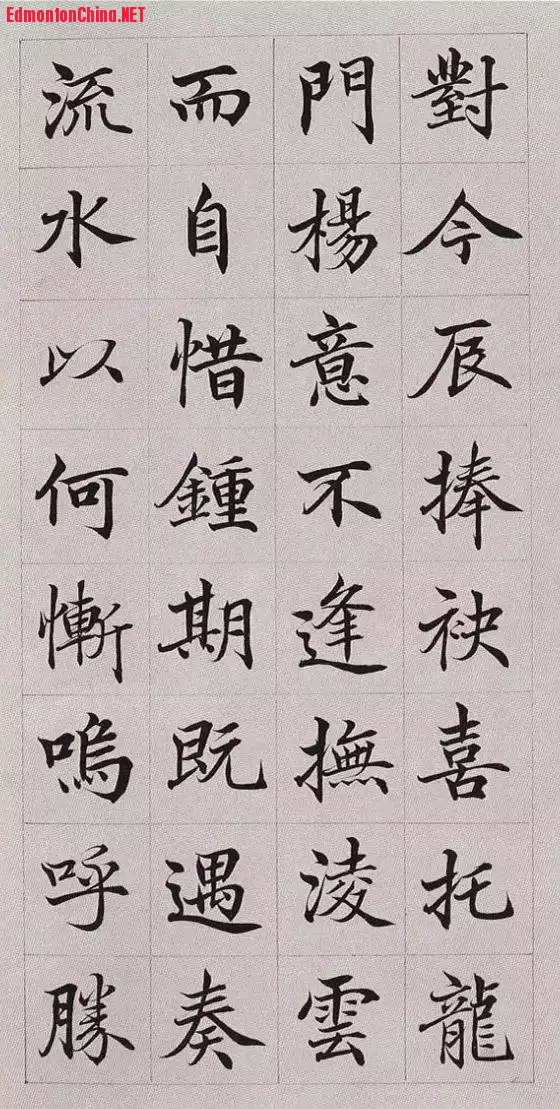 EdmontonChina.NET
對今辰捧袂喜托龍
門楊意不逢撫淩雲
而自惜鍾期既遇奏
流水以何慚嗚呼勝